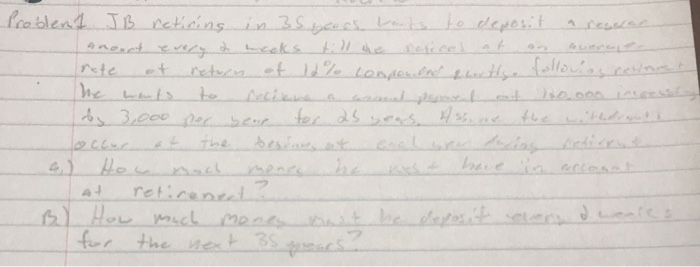 Problem 1 JB retiring in 35 years wants to deposit a regular
amount every 2 weeks till he retires at an average
rate of return of 12% compound Following
he wants to a annual of
by 3,000 per year for 25 years. the
occur at the of each year during
a.) How much money he must have in account
at retirement?
B) How much money must he deposit every 2 weeks
for the next 35 years?